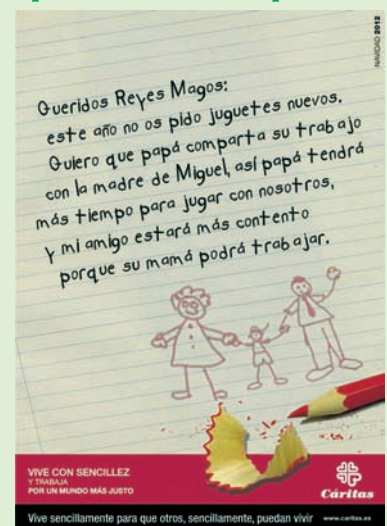 NAVIDAD 2012
Queridos Reyes Magos:
este año no os pido juguetes nuevos.
Quiero que papá comparta su trabajo
con la madre de Miguel, así papá tendrá
más tiempo para jugar con nosotros,
y mi amigo estará más contento
porque su mamá podrá trabajar.
VIVE CON SENCILLEZ
Y TRABAJA
POR UN MUNDO MÁS JUSTO
Cáritas
Vive sencillamente para que otros, sencillamente, puedan vivir www.caritas.es